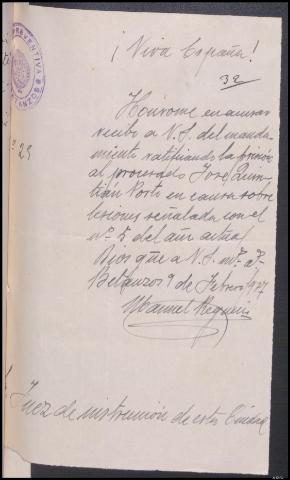 ¡Viva España!
32
PREVENTIVA
nº 29
Hónrome en acusar
recibo a V.S. del manda-
miento ratificando la prisión
al procesado José
Porto en causa sobre
lesiones señalada con el
nº 5 del año actual
Dios güe a V.S. ms. as.
Betanzos 9 de Febrero 1937
Manuel Regueiro
Juez de instrucción de esta Ciudad